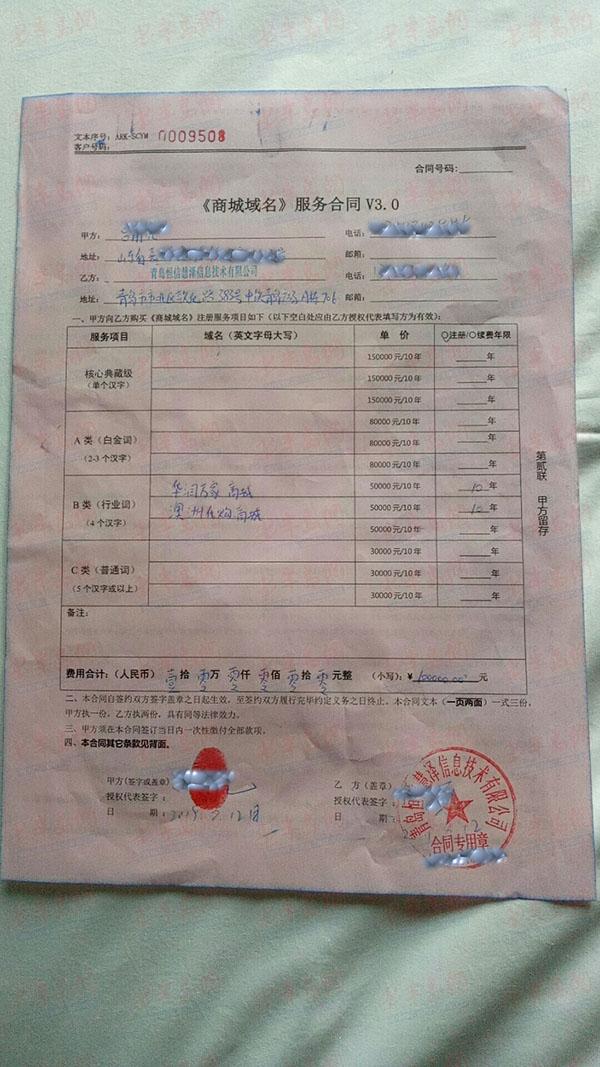 文本序号: ARK-SCYM 0009508
客户号码:
合同号码:
《商城域名》服务合同 V3.0
甲方:
电话:
地址: 山东省
邮箱:
乙方: 青岛恒信慧泽信息技术有限公司
电话:
地址: 青岛市市北区
邮箱:
一、甲方向乙方购买《商城域名》注册服务项目如下(以下空白处应由乙方授权代表填写方为有效):
服务项目 域名(英文字母大写) 单 价 ○注册/○续费年限
核心典藏级
(单个汉字)
150000 元/10 年 年
150000 元/10 年 年
150000 元/10 年 年
A 类(白金词)
(2-3 个汉字)
80000 元/10 年 年
80000 元/10 年 年
80000 元/10 年 年
B 类(行业词)
(4 个汉字)
华润万家 商城 50000 元/10 年 10 年
澳洲 商城 50000 元/10 年 10 年
50000 元/10 年 年
C 类(普通词)
(5 个汉字或以上)
30000 元/10 年 年
30000 元/10 年 年
30000 元/10 年 年
备注:
费用合计:(人民币) 壹 拾 零 万 零 仟 零 佰 零 拾 零 元整 (小写):¥ 100000.00 元
二、本合同自签约双方签字盖章之日起生效,至签约双方履行完毕约定义务之日终止。本合同文本(一页两面)一式三份,
甲方执一份,乙方执两份,具有同等法律效力。
三、甲方须在本合同签订当日内一次性缴付全部款项。
四、本合同其它条款见背面。
甲方(签字或盖章)
授权代表签字:
日 期:
乙 方(盖章)
授权代表签字:
日 期:
慧泽信息技术有限公司
合同专用章
第贰联 甲方留存